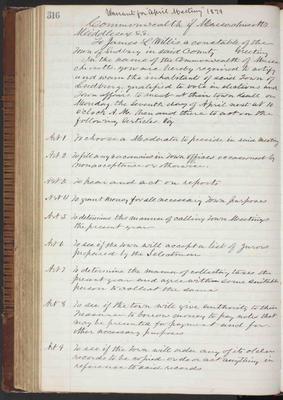 316
Warrant for April Meeting 1879
Commonwealth of Massachusetts
Middlesex SS.
To James L. Willis a constable of the
Town of Sudbury in said County Greeting
In the name of the Commonwealth of Massa
chusetts you are hereby required to notify
and warn the inhabitants of said Town of
Sudbury, qualified to vote in elections and
Town affairs to meet at their Town Hall on
Monday the Seventh day of April next at 10
oclock A.M. then and there to act on the
following articles viz
Art 1 To choose a Moderator to preside in said meeting
Art 2 To fill any vacancies in Town offices occasioned by
nonacceptance or otherwise
Art 3 To hear and act on reports
Art 4 To grant money for all necessary Town purposes
Art 5 To determine the manner of calling Town Meetings
the present year
Art 6 To see if the town will accept a list of Jurors
prepared by the Selectmen
Art 7 To determine the manner of collecting taxes the
present year and agree with some suitable
person to collect the same
Art 8 To see if the town will give authority to their
Treasurer to borrow money to pay notes that
may be presented for payment and for
other necessary purposes
Art 9 To see if the town will order any of its older
records to be copied or do or act anything in
reference to said records